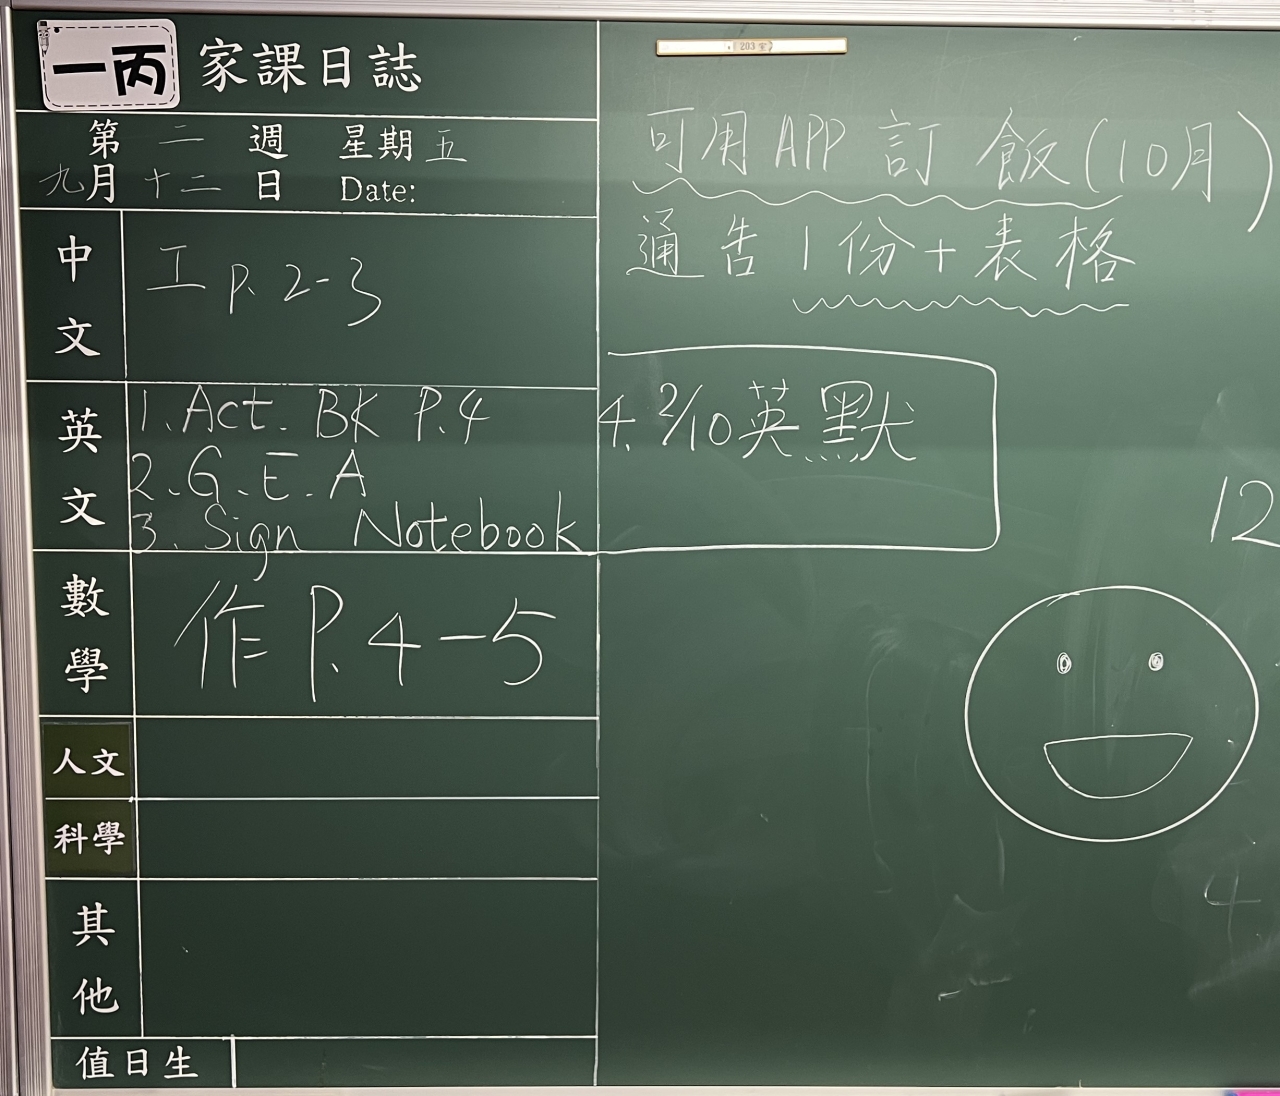 一丙 家課日誌
第 二 週 星期 五
九月 十二 日 Date:
中文
工 P. 2-3
英文
1. Act. BK P.4
2. G.E.A
3. Sign Notebook
4. 2/10 英默
數學
作 P. 4-5
人文
科學
其他
值日生
203室
可用APP 訂飯(10月)
通告1份+表格
12
4